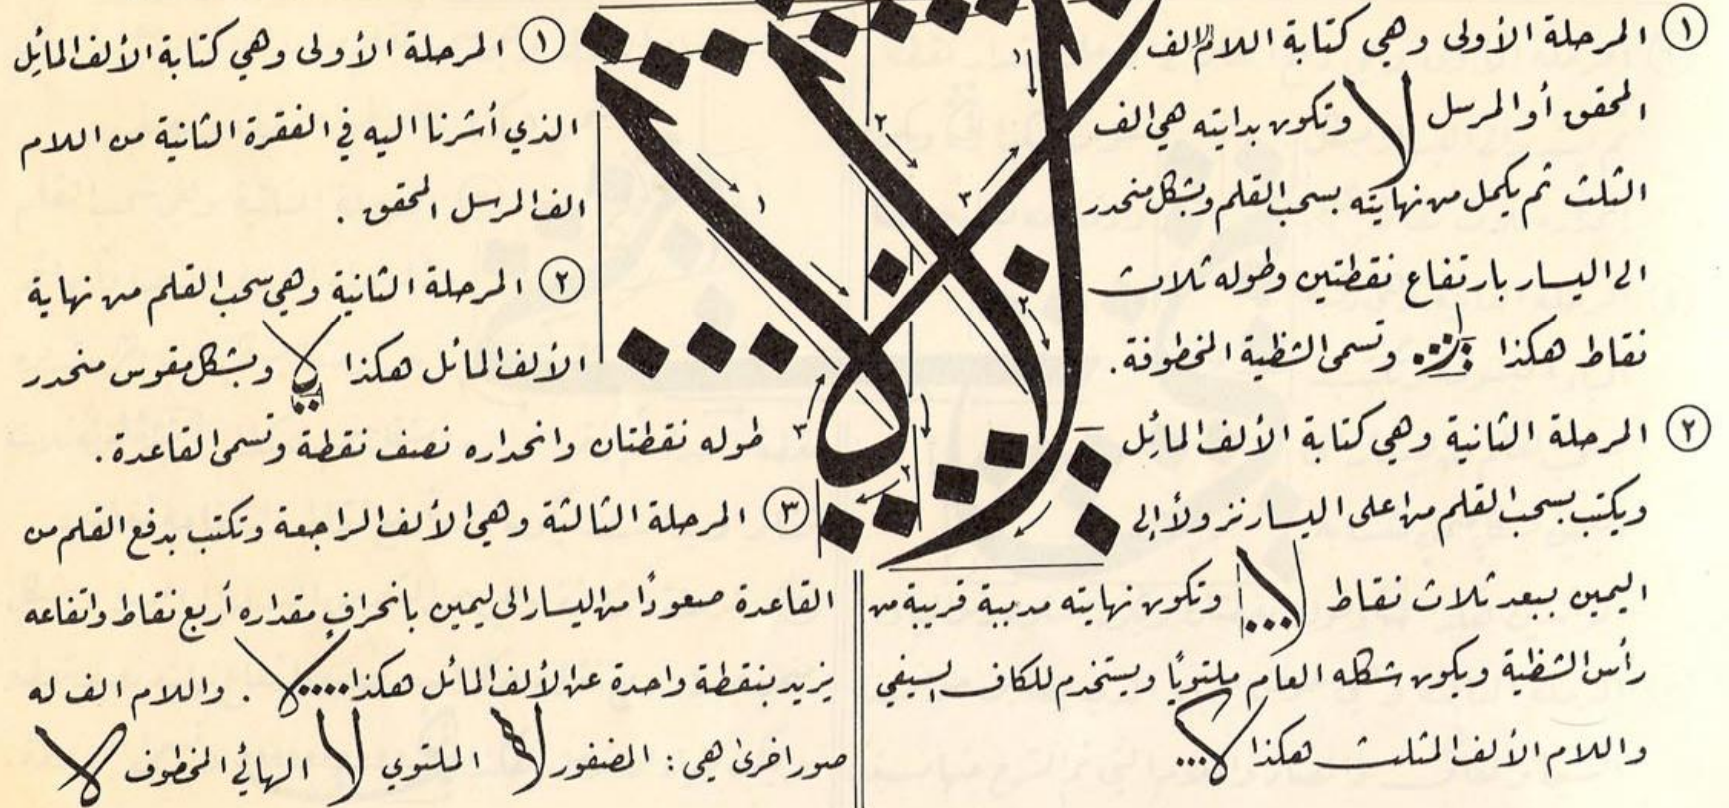 ١ المرحلة الأولى وهي كتابة اللام الف
المحقق أو المرسل لا وتكون بدايته هي الف
الثلث ثم يكمل من نهايته بسحب القلم وبشكل منحدر
الى اليسار بارتفاع نقطتين وطوله ثلاث
نقاط هكذا وتسمى الشظية المخطوفة.
٢ المرحلة الثانية وهي كتابة الألف المائل
ويكتب بسحب القلم من اعلى اليسار نزولاً إلى
اليمين ببعد ثلاث نقاط لا وتكون نهايته مدببة قريبة من
رأس الشظية ويكون شكله العام ملتويًا ويستخدم للكاف السيفي
واللام الألف المثلث هكذا لا
١ المرحلة الأولى وهي كتابة الألف المائل
الذي أشرنا اليه في الفقرة الثانية من اللام
الف المرسل المحقق .
٢ المرحلة الثانية وهي سحب القلم من نهاية
الألف المائل هكذا لا وبشكل مقوس منحدر
طوله نقطتان وانحداره نصف نقطة وتسمى القاعدة .
٣ المرحلة الثالثة وهي الألف الراجعة وتكتب بدفع القلم من
القاعدة صعودًا من اليسار الى ليمين بانحراف مقداره أربع نقاط واتفاعه
يزيد بنقطة واحدة عن الألف المائل هكذا لا . واللام الف له
صور اخرى هي : المضفور لا الملتوي لا الهائي المخطوف لا
لا لا
١ ٢ ٣ ٢
١ ٣ ٢